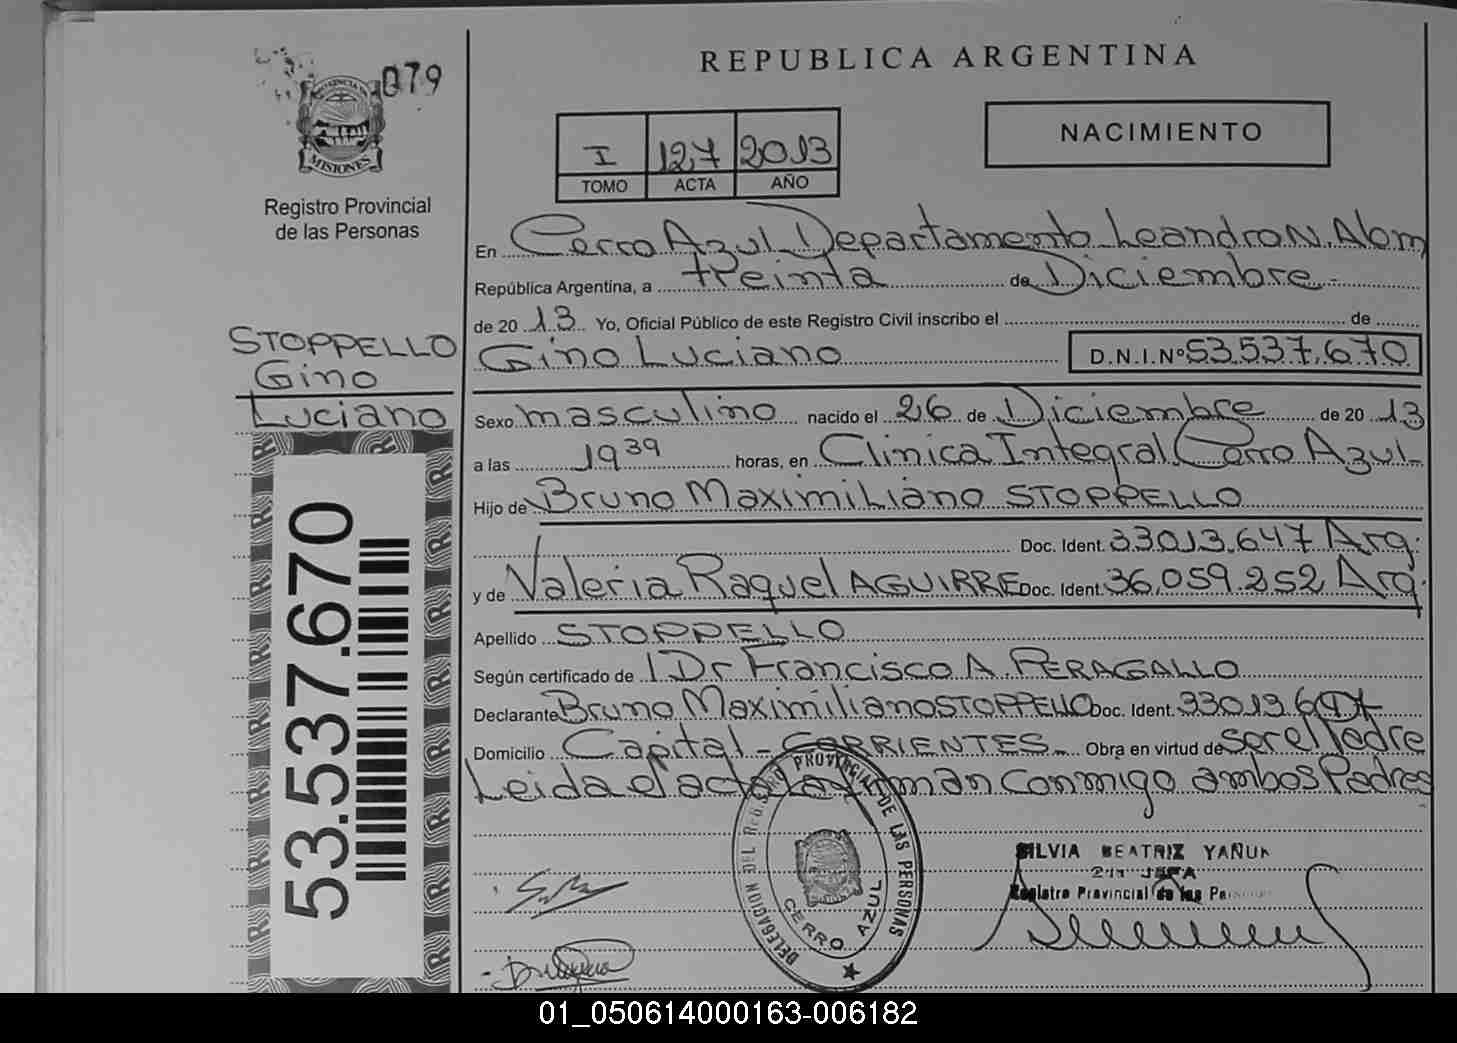 REPUBLICA ARGENTINA
079
PROVINCIA DE
MISIONES
Registro Provincial
de las Personas
I 127 2013
TOMO ACTA AÑO
NACIMIENTO
En Cerro Azul Departamento Leandro N. Alem
República Argentina, a treinta de Diciembre
de 20 13 Yo, Oficial Público de este Registro Civil inscribo el de
Gino Luciano D.N.I.Nº 53.537.670
STOPPELLO
Gino
Luciano
Sexo masculino nacido el 26 de Diciembre de 20 13
a las 19 39 horas, en Clinica Integral Cerro Azul
Hijo de Bruno Maximiliano STOPPELLO
Doc. Ident. 33013.647 Arg.
y de Valeria Raquel AGUIRRE Doc. Ident. 36.059.252 Arg.
Apellido STOPPELLO
Según certificado de Dr Francisco A. PERAGALLO
Declarante Bruno Maximiliano STOPPELLO Doc. Ident. 33013
Domicilio Capital - CORRIENTES Obra en virtud de ser el Padre
Leida el acta la firman conmigo ambos Padres
53.537.670
DELEGACION DEL REGISTRO PROVINCIAL DE LAS PERSONAS
CERRO AZUL
SILVIA BEATRIZ
JEFA
Registro Provincial de las
01_050614000163-006182